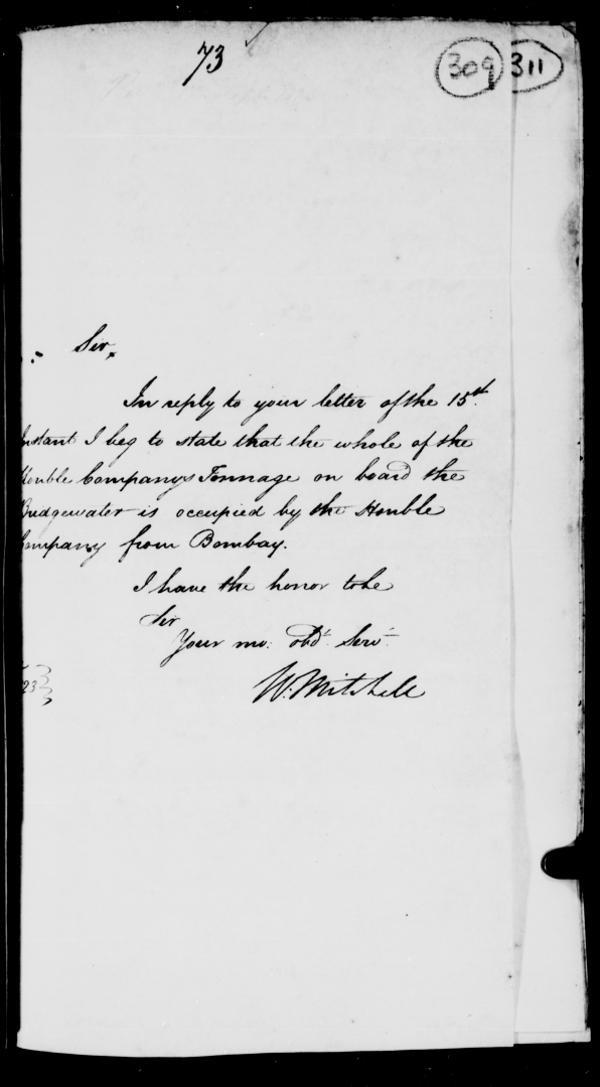 73
309 311
Sir,
In reply to your letter of the 15th
Instant I beg to state that the whole of the
Honble Companys Tonnage on board the
Bridgewater is occupied by the Honble
Company from Bombay.
I have the honor to be
Sir
Your mo: obdt Servt
W. Mitchell
23